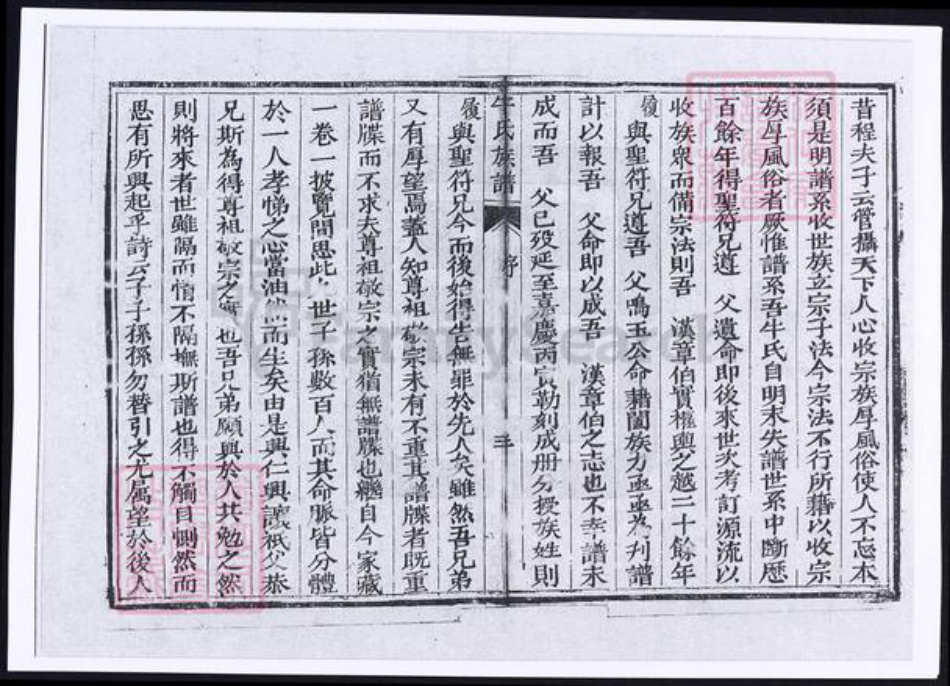 昔程夫子云管攝天下人心收宗族厚風俗使人不忘本
須是明譜系收世族立宗子法今宗法不行所藉以收宗
族厚風俗者厥惟譜系吾牛氏自明末失譜世系中斷歷
百餘年得聖符兄遵　父遺命即後來世次考訂源流以
收族衆而備宗法則吾　漢章伯實權輿之越二十餘年
後與聖符兄遵吾　父鳴玉公命藉闔族力亟亟為刋譜
計以報吾　父命即以成吾　漢章伯之志也不幸譜未
成而吾　父已歿延至嘉慶丙寅勒刻成册分授族姓則
牛氏族譜　序　三
後與聖符兄今而後始得告無罪於先人矣雖然吾兄弟
又有厚望焉蓋人知尊祖敬宗未有不重其譜牒者既重
譜牒而不求夫尊祖敬宗之實猶無譜牒也繼自今家藏
一卷一披覽間思此世子孫數百人而其命脈皆分體
於一人孝悌之心當油然而生矣由是興仁興讓祇父恭
兄斯為得尊祖敬宗之實也吾兄弟願與族人共勉之然
則將來者世雖隔而情不隔撫斯譜也得不觸目惻然而
思有所興起乎詩云子子孫孫勿替引之尤属望於後人
FamilySearch